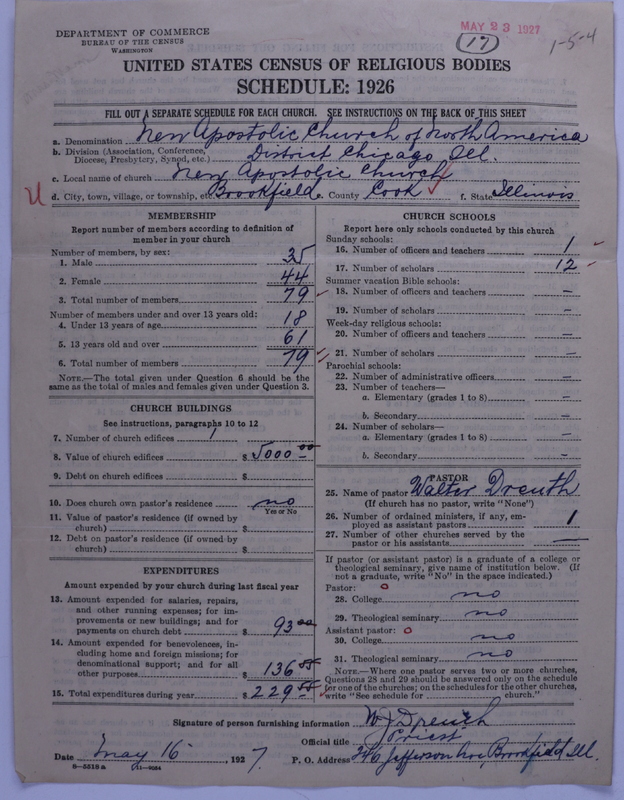 DEPARTMENT OF COMMERCE
BUREAU OF THE CENSUS
WASHINGTON
MAY 23 1927
(17)
1-5-4
UNITED STATES CENSUS OF RELIGIOUS BODIES
SCHEDULE: 1926
FILL OUT A SEPARATE SCHEDULE FOR EACH CHURCH. SEE INSTRUCTIONS ON THE BACK OF THIS SHEET
a. Denomination New Apostolic Church of North America
b. Division (Association, Conference, Diocese, Presbytery, Synod, etc.) District Chicago Ill.
c. Local name of church New Apostolic Church
d. City, town, village, or township, etc. Brookfield e. County Cook f. State Illinois
MEMBERSHIP
Report number of members according to definition of
member in your church
Number of members, by sex:
1. Male 35
2. Female 44
3. Total number of members 79
Number of members under and over 13 years old:
4. Under 13 years of age 18
5. 13 years old and over 61
6. Total number of members 79
NOTE.—The total given under Question 6 should be the
same as the total of males and females given under Question 3.
CHURCH BUILDINGS
See instructions, paragraphs 10 to 12
7. Number of church edifices 1
8. Value of church edifices $ 5000.00
9. Debt on church edifices $
10. Does church own pastor's residence no
Yes or No
11. Value of pastor's residence (if owned by
church) $
12. Debt on pastor's residence (if owned by
church) $
EXPENDITURES
Amount expended by your church during last fiscal year
13. Amount expended for salaries, repairs,
and other running expenses; for im-
provements or new buildings; and for
payments on church debt $ 93 00
14. Amount expended for benevolences, in-
cluding home and foreign missions; for
denominational support; and for all
other purposes $ 136
15. Total expenditures during year $ 229
CHURCH SCHOOLS
Report here only schools conducted by this church
Sunday schools:
16. Number of officers and teachers 1
17. Number of scholars 12
Summer vacation Bible schools:
18. Number of officers and teachers —
19. Number of scholars —
Week-day religious schools:
20. Number of officers and teachers —
21. Number of scholars —
Parochial schools:
22. Number of administrative officers —
23. Number of teachers—
a. Elementary (grades 1 to 8) —
b. Secondary —
24. Number of scholars—
a. Elementary (grades 1 to 8) —
b. Secondary —
PASTOR
25. Name of pastor Walter Dreuth
(If church has no pastor, write "None")
26. Number of ordained ministers, if any, em-
ployed as assistant pastors 1
27. Number of other churches served by the
pastor or his assistants —
If pastor (or assistant pastor) is a graduate of a college or
theological seminary, give name of institution below. (If
not a graduate, write "No" in the space indicated.)
Pastor:
28. College no
29. Theological seminary no
Assistant pastor:
30. College no
31. Theological seminary no
NOTE.—Where one pastor serves two or more churches,
Questions 28 and 29 should be answered only on the schedule
for one of the churches; on the schedules for the other churches,
write "See schedule for church."
Signature of person furnishing information W J Dreuth
Official title Priest
Date May 16, 1927 P. O. Address 246 Jefferson Ave, Brookfield Ill.
8—5518 a 11—9084